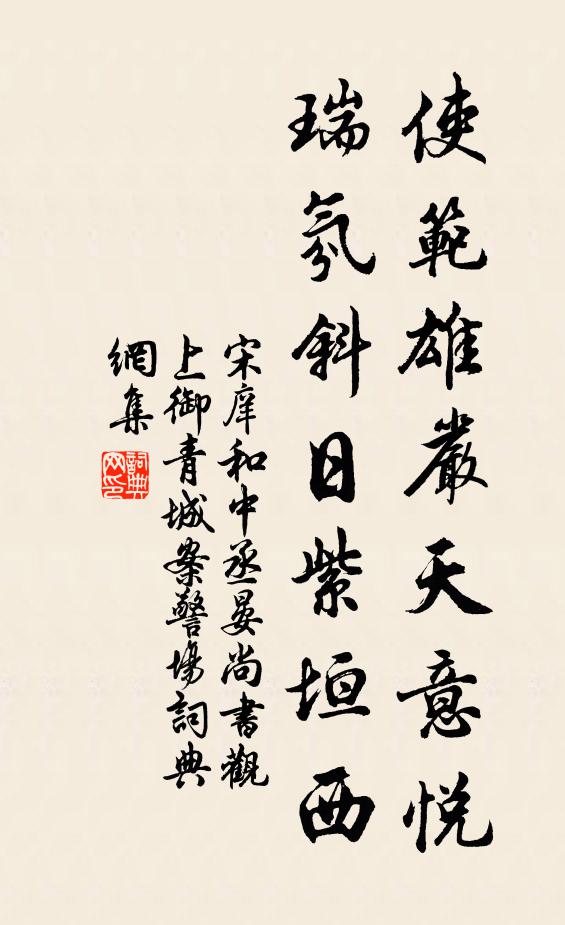 使範雄嚴天意悅
瑞氛斜日紫垣西
宋庠和中丞晏尚書觀
上御青城案警場詞典
網集
詞典
网印